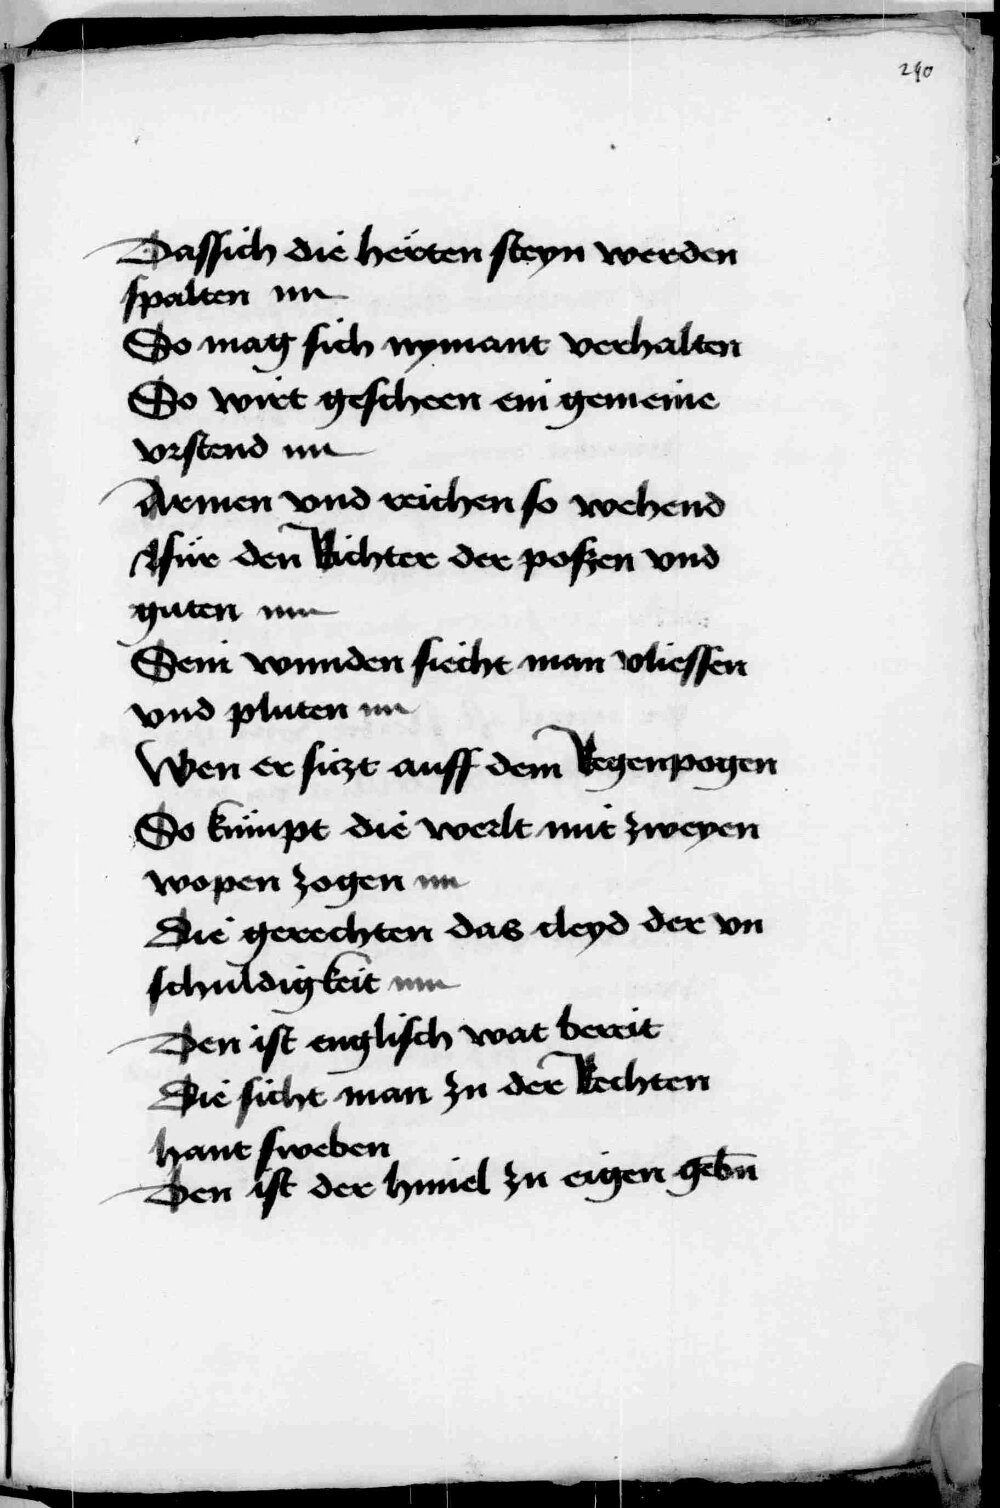 290
Dassich die herten steyn werden
spalten
So mag sich nymant verhalten
So wirt gescheen ein gemeine
vrstend
Armen vnd reichen so wehend
für den Richter der poszen vnd
guten
Sein wunden siecht man vliessen
vnd pluten
Wen er siczt auff dem Regenpogen
So kumpt die werlt mit zweyen
wopen zogen
Die gerechten das cleyd der vn
schuldigkeit
Den ist englisch wat bereit
Die sicht man zu der Rechten
hant sweben
Den ist der himel zu eigen gebn̄